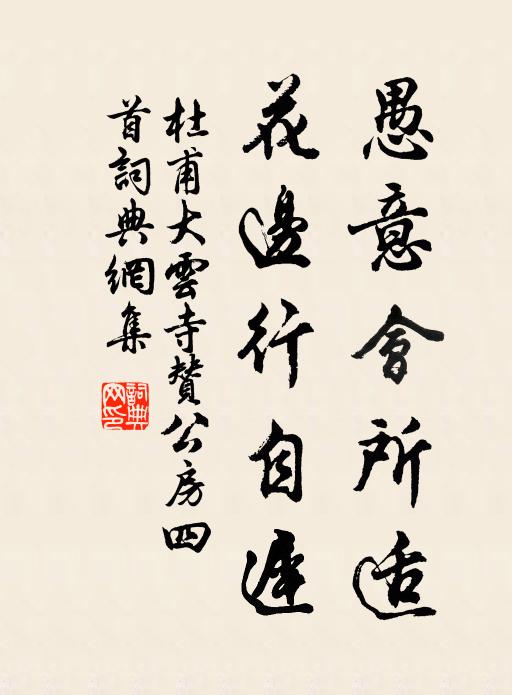 愚意會所适
花邊行自遲
杜甫大雲寺贊公房四
首詞典網集
詞典
网印